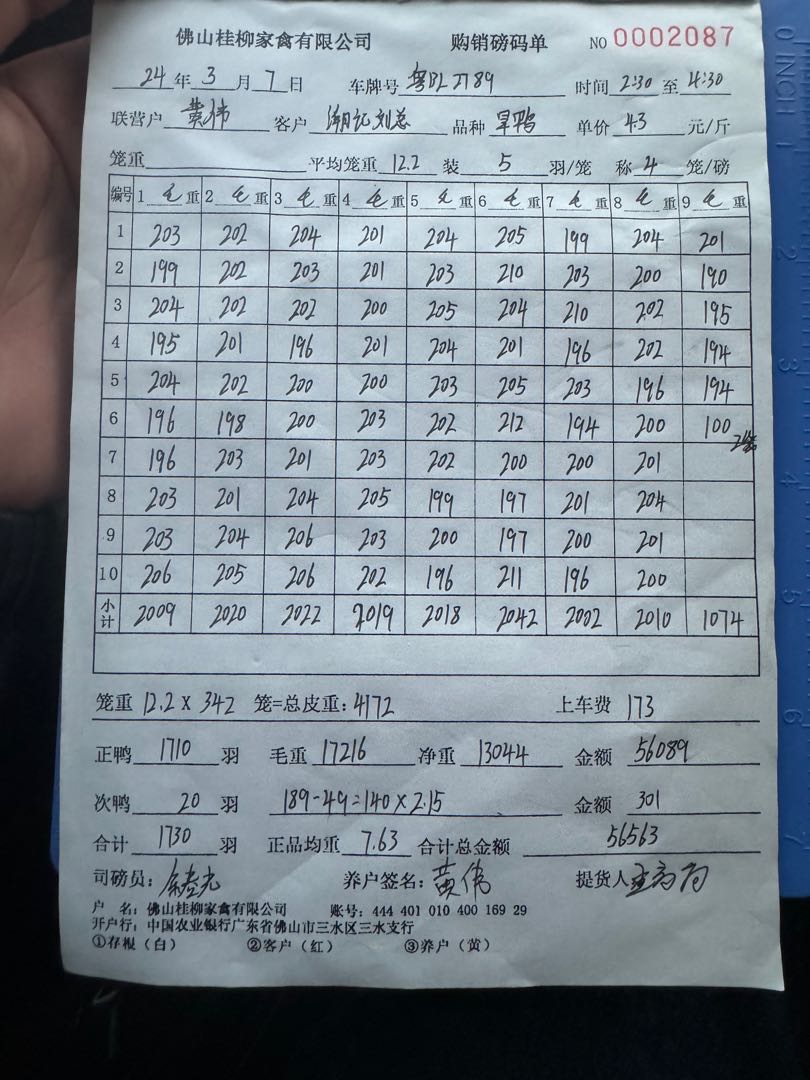 佛山桂柳家禽有限公司 购销磅码单 NO 0002087
24年3月7日 车牌号 粤DL2789 时间 2:30 至 4:30
联营户 黄伟 客户 潮记刘总 品种 旱鸭 单价 4.3 元/斤
笼重 平均笼重 12.2 装 5 羽/笼 称 4 笼/磅
编号 1 毛 重 2 毛 重 3 毛 重 4 毛 重 5 毛 重 6 毛 重 7 毛 重 8 毛 重 9 毛 重
1 203 202 204 201 204 205 199 204 201
2 199 202 203 201 203 210 203 200 190
3 204 202 202 200 205 204 210 202 195
4 195 201 196 201 204 201 196 202 194
5 204 202 200 200 203 205 203 196 194
6 196 198 200 203 202 212 194 200 100 2笼
7 196 203 201 203 202 200 200 201
8 203 201 204 205 199 197 201 204
9 203 204 206 203 200 197 200 201
10 206 205 206 202 196 211 196 200
小计 2009 2020 2022 2019 2018 2042 2002 2010 1074
笼重 12.2 × 342 笼=总皮重: 4172 上车费 173
正鸭 1710 羽 毛重 17216 净重 13044 金额 56089
次鸭 20 羽 189-49=140×2.15 金额 301
合计 1730 羽 正品均重 7.63 合计总金额 56563
司磅员: 养户签名: 黄伟 提货人
户 名: 佛山桂柳家禽有限公司 账号: 444 401 010 400 169 29
开户行: 中国农业银行广东省佛山市三水区三水支行
①存根(白) ②客户(红) ③养户(黄)
INCH 1
2
3
5
7